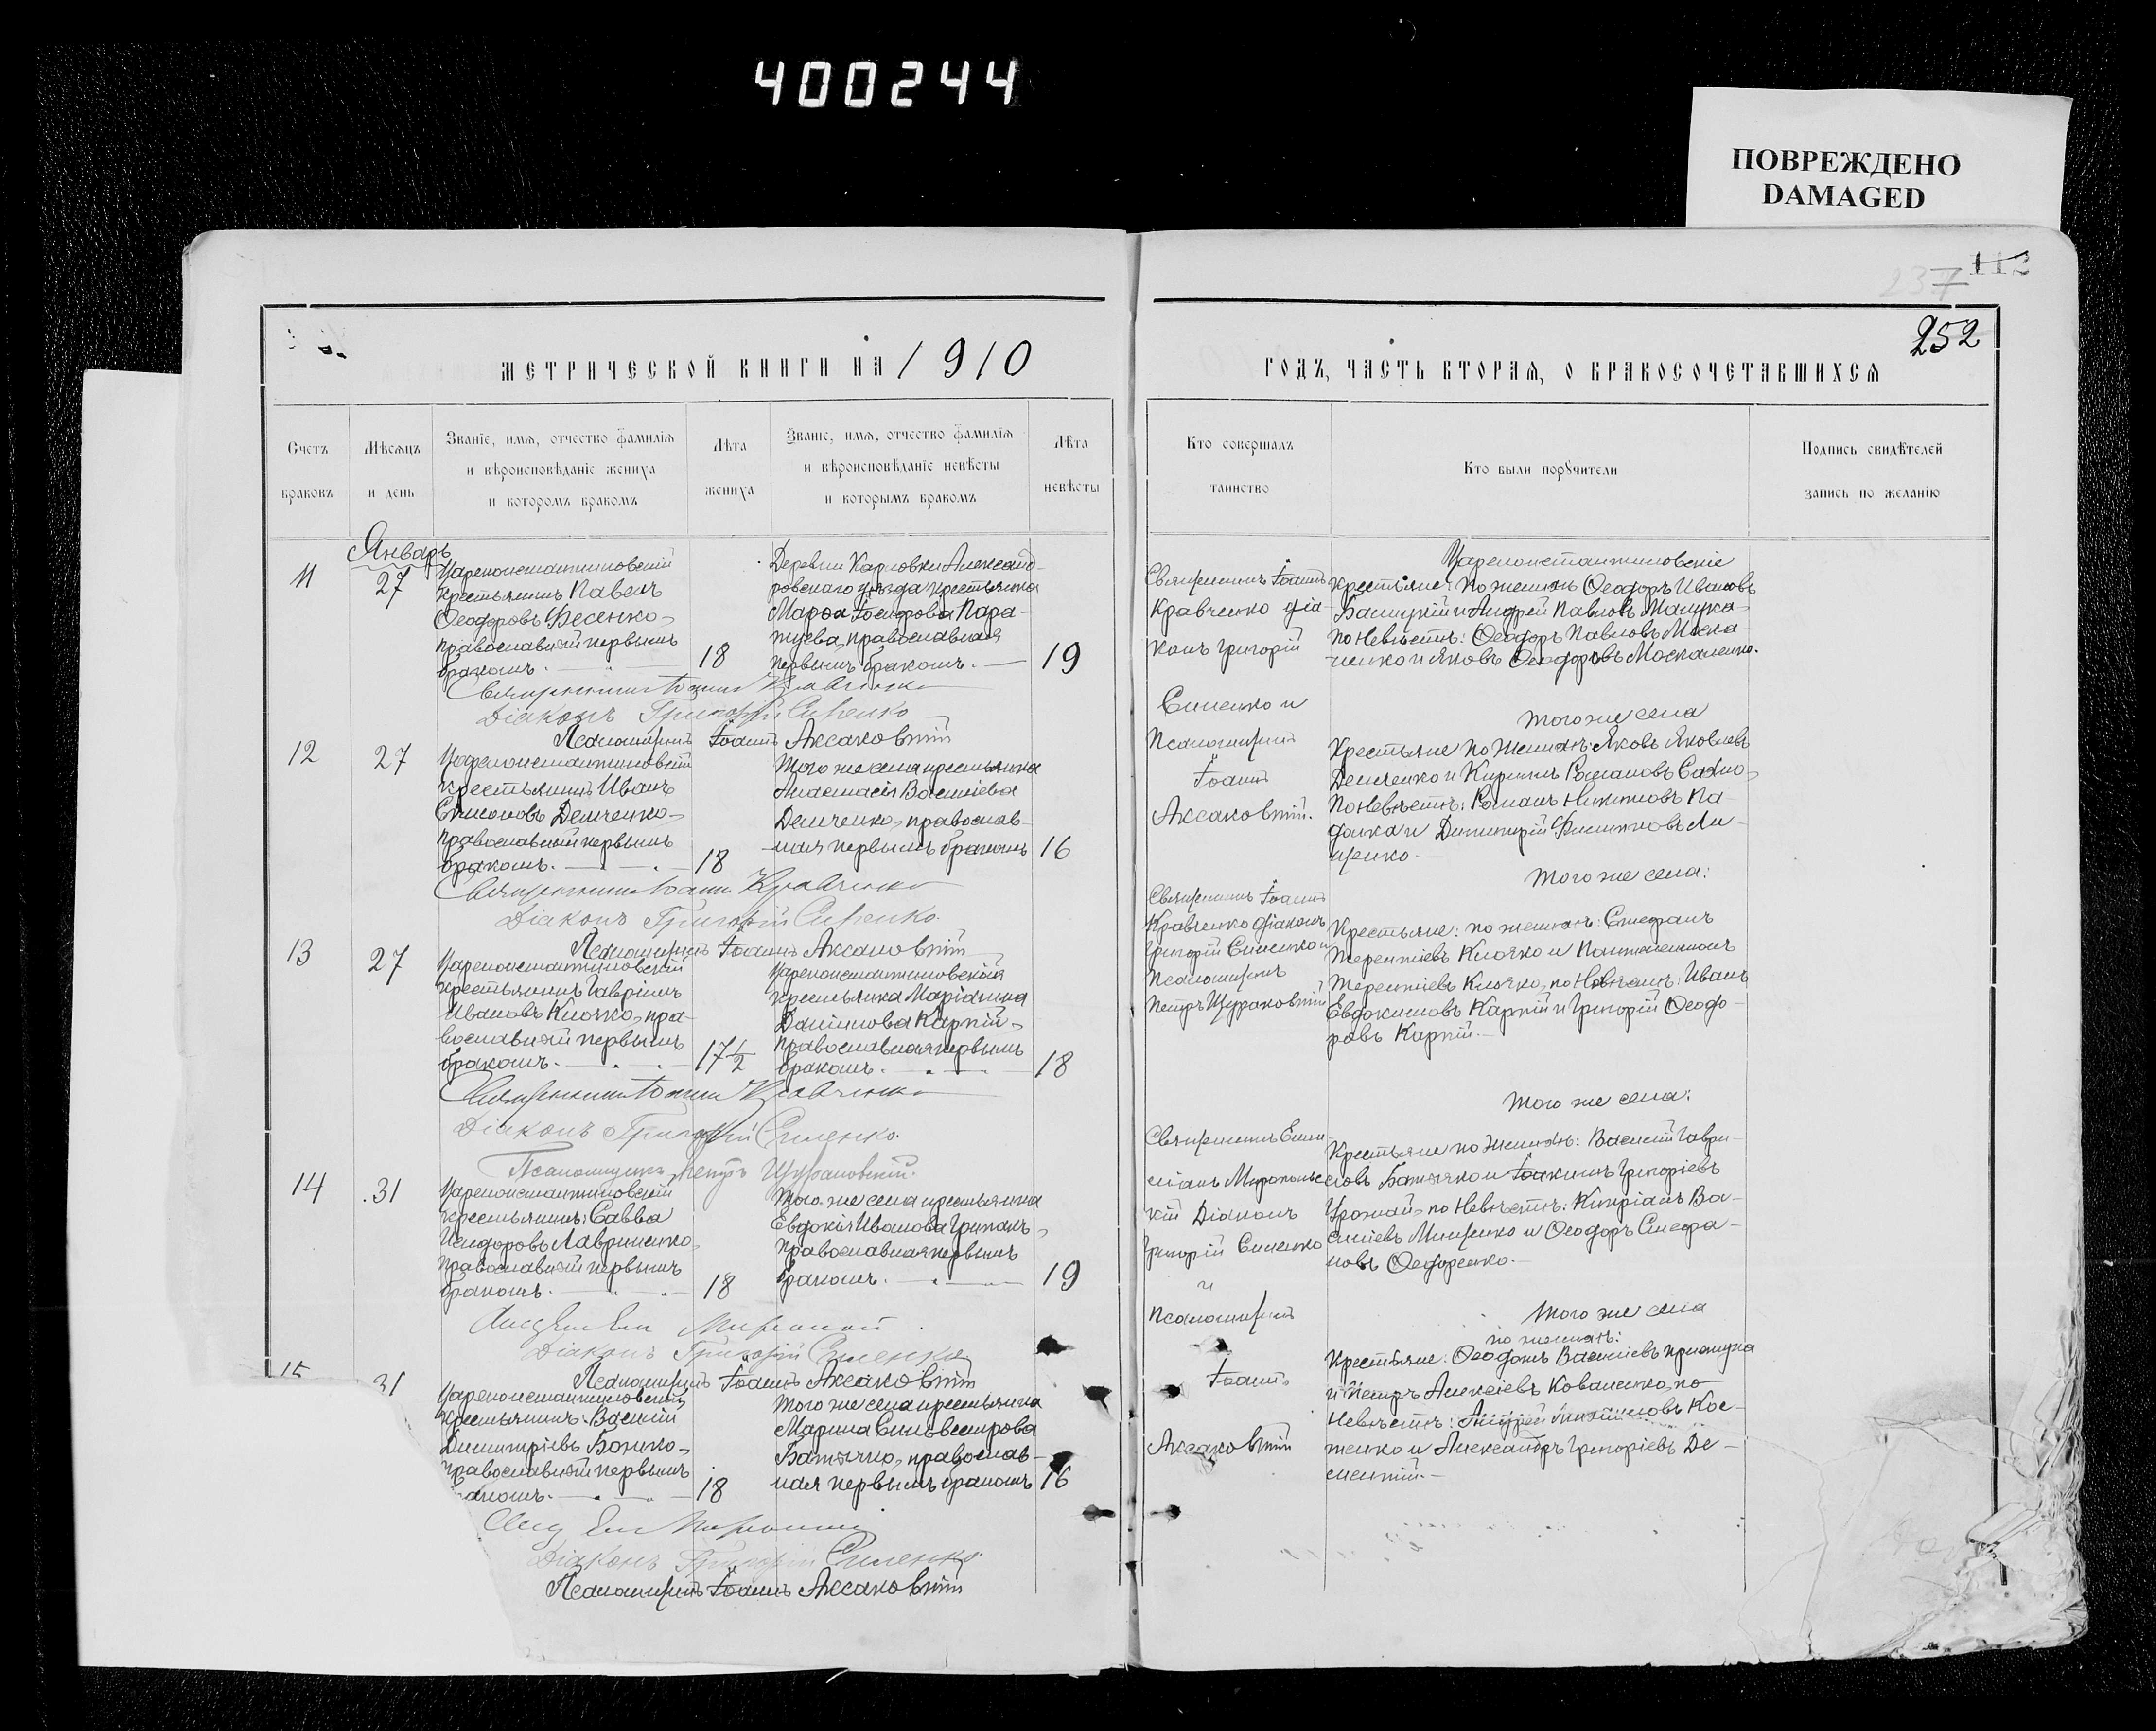 400244
ПОВРЕЖДЕНО
DAMAGED
112
237
252
МЕТРИЧЕСКОЙ КНИГИ НА 1910
ГОДЪ, ЧАСТЬ ВТОРАЯ, О БРАКОСОЧЕТАВШИХСЯ
Счетъ
браковъ
Мѣсяцъ
и день
Званіе, имя, отчество фамилія
и вѣроисповѣданіе жениха
и которомъ бракомъ
Лѣта
жениха
Званіе, имя, отчество фамилія
и вѣроисповѣданіе невѣсты
и которымъ бракомъ
Лѣта
невѣсты
Кто совершалъ
таинство
Кто были порꙋчители
Подпись свидѣтелей
запись по желанію
Январь
11
27
Цареконстантиновскій
крестьянинъ Павелъ
Ѳеодоровъ Фесенко,
православный первымъ
бракомъ.
18
Деревни Карловки Александ-
ровскаго уѣзда крестьянка
Марѳа Іосифова
православная
первымъ бракомъ.
19
Священникъ Іоаннъ
Кравченко діа-
конъ Григорій
Силенко и
Псаломщикъ
Іоаннъ
Аксаковскій.
Цареконстантиновскіе
Крестьяне: По женихѣ Ѳеодоръ Ивановъ
и Андрей Павловъ
по Невѣстѣ: Ѳеодоръ Павловъ Моска-
ленко и Яковъ Ѳеодоровъ Москаленко.
Священникъ Іоаннъ Кравченко
Діаконъ Григорій Силенко
Псаломщикъ Іоаннъ Аксаковскій
12
27
Цареконстантиновскій
крестьянинъ Иванъ
Симоновъ Демченко,
православный первымъ
бракомъ.
18
Того же села крестьянка
Анастасія Васильева
Демченко, православ-
ная первымъ бракомъ
16
того же села
Крестьяне по Женихѣ: Яковъ Яковлевъ
Демченко и Кириллъ Романовъ
По Невѣстѣ: Романъ Никитовъ Па-
далка и Димитрій Филипповъ Ли-
щенко.
Священникъ Іоаннъ Кравченко
Діаконъ Григорій Силенко.
Псаломщикъ Іоаннъ Аксаковскій
13
27
Цареконстантиновскій
крестьянинъ Гавріилъ
Ивановъ Клочко, пра-
вославный первымъ
бракомъ.
17 1/2
Цареконстантиновскій
крестьянка Маріамна
Даніилова Карпій,
православная первымъ
бракомъ.
18
Священникъ Іоаннъ
Кравченко діаконъ
Григорій Силенко и
Псаломщикъ
Петръ Щурановскій
того же села:
Крестьяне: по женихѣ: Стефанъ
Терентіевъ Клочко и Пантелеимонъ
Терентіевъ Клочко, по Невѣстѣ: Иванъ
Евдокимовъ Карпій и Григорій Ѳеодо-
ровъ Карпій.
Священникъ Іоаннъ Кравченко
Діаконъ Григорій Силенко.
Псаломщикъ Петръ Щурановскій.
14
31
Цареконстантиновскій
крестьянинъ: Савва
Исидоровъ Лавриненко,
православный первымъ
бракомъ.
18
Того же села крестьянка
Евдокія Иванова
православная первымъ
бракомъ.
19
Священникъ
Діаконъ
Григорій Силенко
и
Псаломщикъ
Іоаннъ
Аксаковскій
того же села:
Крестьяне по Женихѣ: Василій Гаври-
ловъ и Іоакимъ Григоріевъ
по Невѣстѣ: Кипріанъ Ва-
силіевъ Мищенко и Ѳеодоръ Стефа-
новъ Ѳедоренко.
Діаконъ Григорій Силенко
Псаломщикъ Іоаннъ Аксаковскій
15
31
Цареконстантиновскій
крестьянинъ: Василій
Димитріевъ Божко,
православный первымъ
бракомъ.
18
Того же села крестьянка
Марина Сильвестрова
православ-
ная первымъ бракомъ
16
того же села
по женихѣ:
Крестьяне: Василіевъ
и Петръ Алексіевъ Коваленко, по
Невѣстѣ: Андрей Кос-
тенко и Александръ Григоріевъ Де-
ментій.
Діаконъ Григорій Силенко.
Псаломщикъ Іоаннъ Аксаковскій